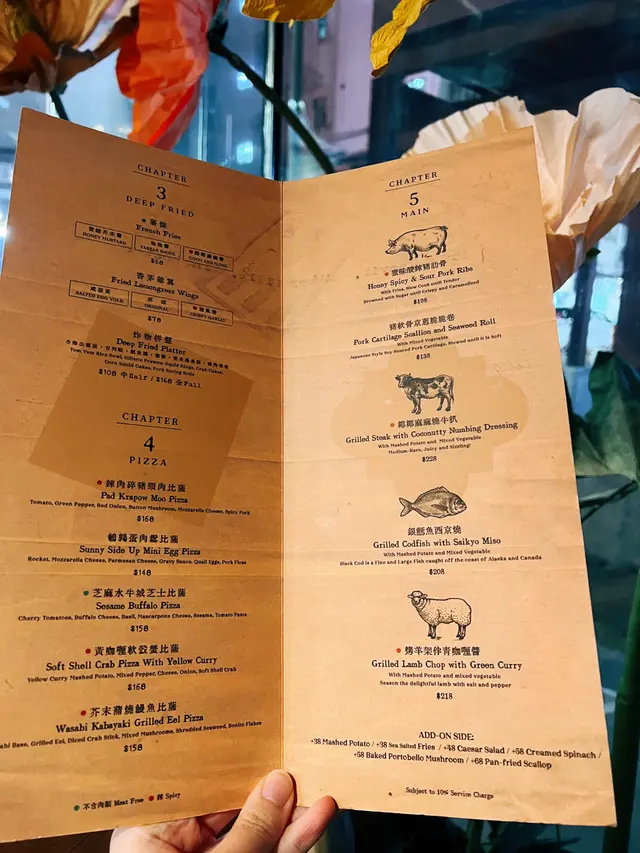 CHAPTER
3
DEEP FRIED
薯條
French Fries
HONEY MUSTARD
TARTAR SAUCE
$68
香茅雞翼
Fried Lemongrass Wings
SALTED EGG YOLK
ORIGINAL
CRISPY GARLIC
$78
炸物拼盤
Deep Fried Platter
Corn Squid Cakes, Pork Spring Rolls
$108 半Half / $168 全Full
CHAPTER
4
PIZZA
辣肉碎豬頸肉比薩
Pad Krapow Moo Pizza
Tomato, Green Pepper, Red Onion, Button Mushroom, Mozzarella Cheese, Spicy Pork
$168
鵪鶉蛋肉鬆比薩
Sunny Side Up Mini Egg Pizza
Rocket, Mozzarella Cheese, Parmesan Cheese, Gravy Sauce, Quail Eggs, Pork Floss
$148
芝麻水牛城芝士比薩
Sesame Buffalo Pizza
Cherry Tomatoes, Buffalo Cheese, Basil, Mascarpone Cheese, Sesame, Tomato Paste
$158
黃咖喱軟殼蟹比薩
Soft Shell Crab Pizza With Yellow Curry
Yellow Curry Mashed Potato, Mixed Pepper, Cheese, Onion, Soft Shell Crab
$168
芥末蒲燒鰻魚比薩
Wasabi Kabayaki Grilled Eel Pizza
Base, Grilled Eel, Diced Crab Stick, Mixed Mushrooms, Shredded Seaweed, Bonito Flakes
$158
不含肉類 Meat Free 辣 Spicy
CHAPTER
5
MAIN
蜜味酸辣豬肋骨
Honey Spicy & Sour Pork Ribs
With Fries, Slow Cook until Tender
Stewed with Sugar until Crispy and Caramelized
$198
豬軟骨京蔥脆脆卷
Pork Cartilage Scallion and Seaweed Roll
With Mixed Vegetable
Japanese Style Soy Sauced Pork Cartilage, Stewed until it is Soft
$138
椰椰麻麻燒牛扒
Grilled Steak with Coconutty Numbing Dressing
With Mashed Potato and Mixed Vegetable
Medium-Rare, Juicy and Sizzling!
$228
銀鱈魚西京燒
Grilled Codfish with Saikyo Miso
With Mashed Potato and Mixed Vegetable
Black Cod is a Fine and Large Fish caught off the coast of Alaska and Canada
$208
烤羊架伴青咖喱醬
Grilled Lamb Chop with Green Curry
With Mashed Potato and mixed vegetable
Season the delightful lamb with salt and pepper
$218
ADD-ON SIDE:
+38 Mashed Potato / +38 Sea Salted Fries / +48 Caesar Salad / +58 Creamed Spinach /
+58 Baked Portobello Mushroom / +68 Pan-fried Scallop
Subject to 10% Service Charge